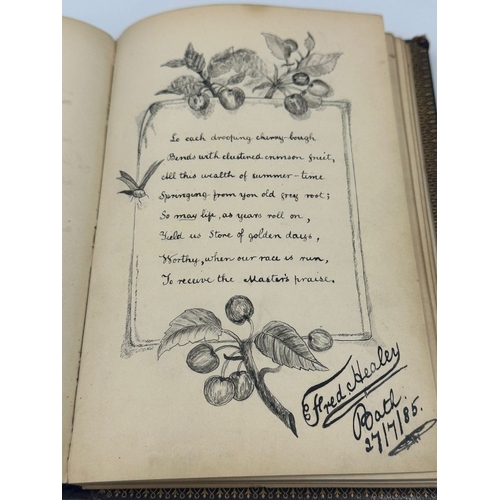 Lo each drooping cherry-bough
Bends with clustered crimson fruit,
All this wealth of summer-time
Springing from yon old grey root;
So may life, as years roll on,
Yield us Store of golden days,
Worthy, when our race is run,
To receive the Master's praise.
Fred Healey
Bath.
27/7/85.